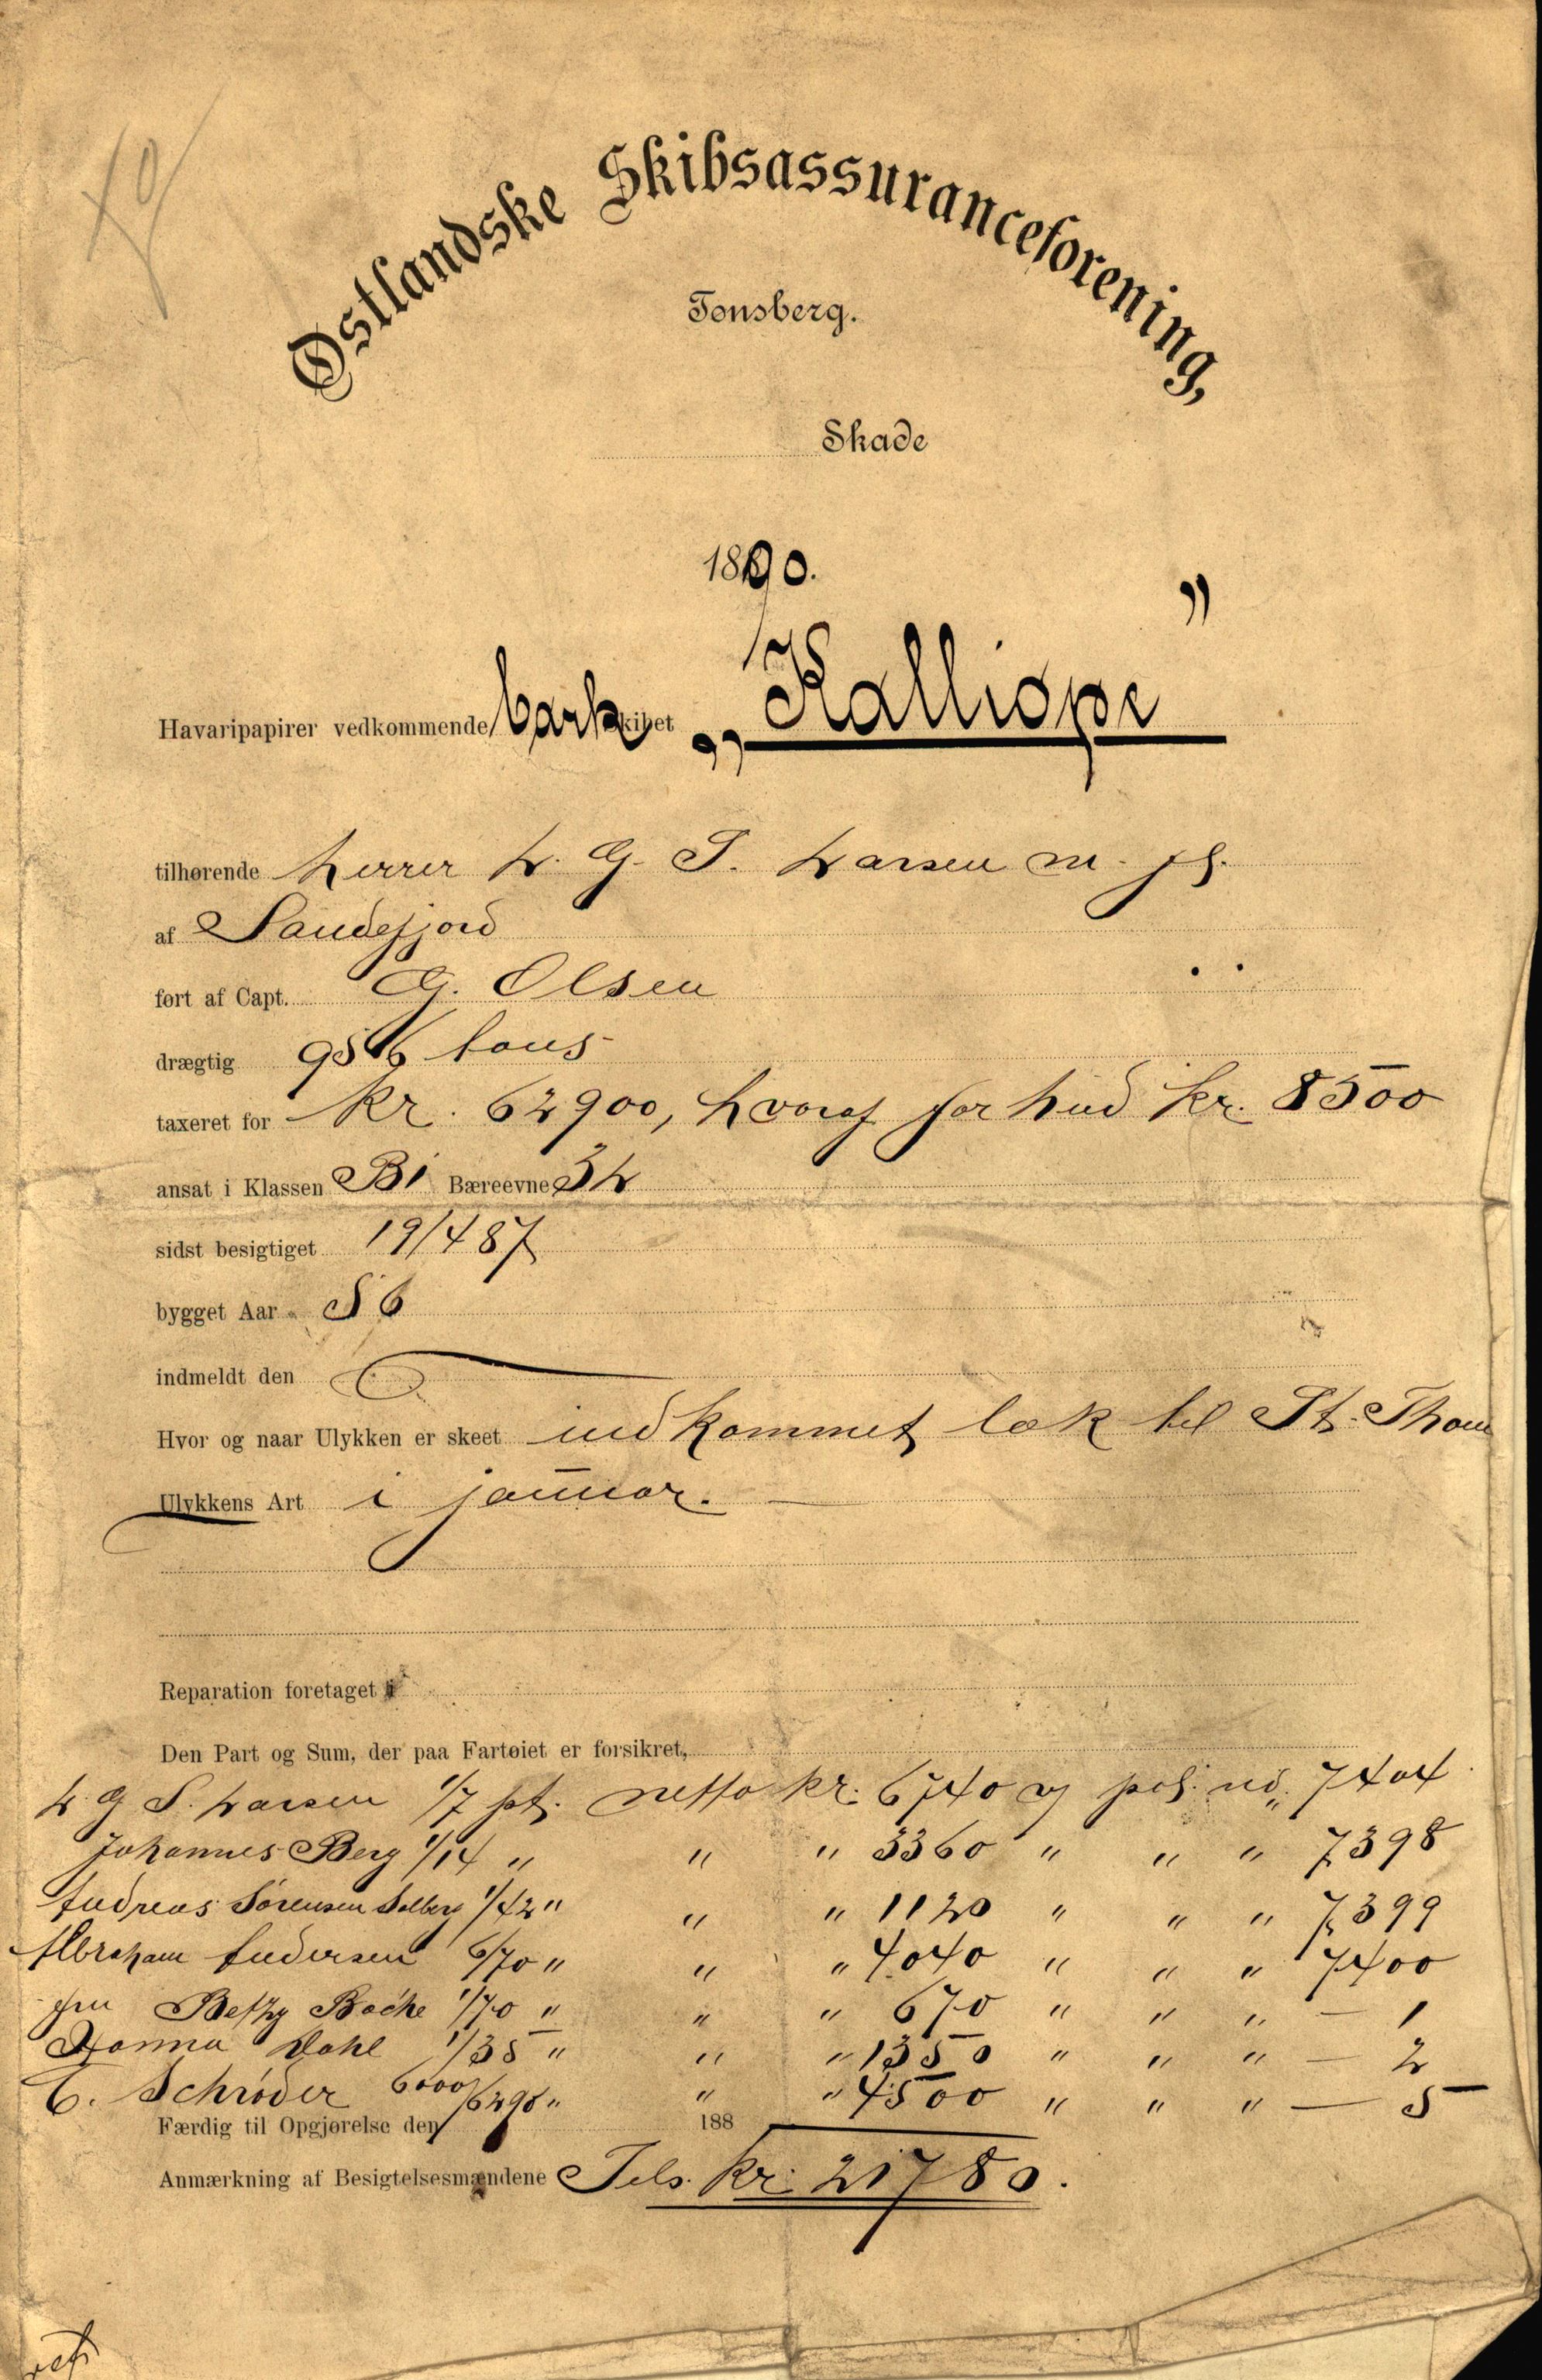 Østlandske Skibsassuranceforening,
Tønsberg.
Skade
1890.
Havaripapirer vedkommende bark skibet „Kalliope”
tilhørende herrer L. G. S. Larsen m. fl.
af Sandefjord
ført af Capt. G. Olsen
drægtig 956 tons
taxeret for Kr. 62900, hvoraf for hud kr. 8500
ansat i Klassen BI Bæreevne 3 L
sidst besigtiget 19/4 87
bygget Aar 56
indmeldt den
Hvor og naar Ulykken er skeet indkommet læk til St. Thom
Ulykkens Art i januar.
Reparation foretaget i
Den Part og Sum, der paa Fartøiet er forsikret,
L. G S. Larsen 1/7 pt. netto kr. 6740 og pol. no„ 7404
Johannes Berg 1/14 " " " 3360 " " " 7398
Andreas Sørensen Solberg 1/42 " " " 1120 " " " 7399
Abraham Andersen 6/70 " " " 4040 " " " 7400
fru Bethy Bache 1/70 " " " 670 " " " — 1
Hanna Dahl 1/35 " " " 1350 " " " — 2
C. Schrøder 6000/6290 " " " 4500 " " " — 5
Færdig til Opgjørelse den 188
Anmærkning af Besigtelsesmændene Tils. Kr. 21780.